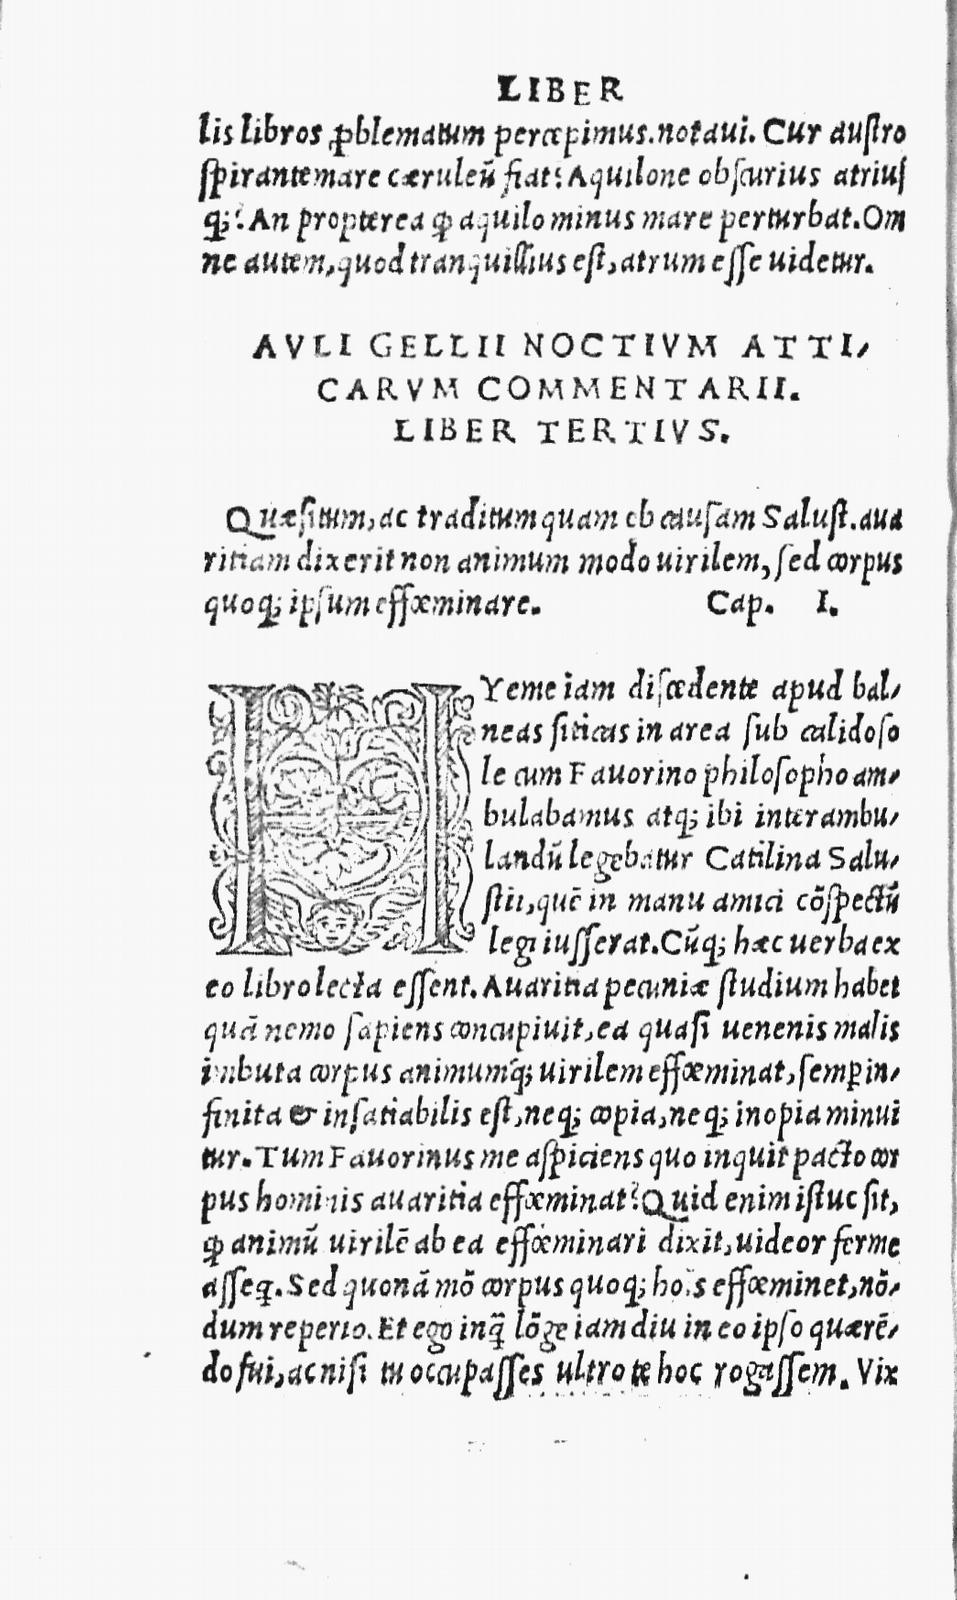 LIBER
lis libros ꝓblematum percepimus.notaui. Cur auſtro
ſpirante mare cæruleũ fiat? Aquilone obſcurius atriuſ
q;? An propterea ꝙ aquilo minus mare perturbat. Om
ne autem, quod tranquillius eſt, atrum eſſe uidetur.
AVLI GELLII NOCTIVM ATTI/
CARVM COMMENTARII.
LIBER TERTIVS.
Quæſitum, ac traditum quam ob cauſam Saluſt. aua
ritiam dixerit non animum modo uirilem, ſed corpus
quoq; ipſum effœminare. Cap. I.
HYeme iam diſcedente apud bal/
neas ſiticas in area ſub calidoſo
le cum Fauorino philoſopho am/
bulabamus atq; ibi inter ambu/
landũ legebatur Catilina Salu/
ſtii, quẽ in manu amici cõſpectũ
legi iuſſerat. Cũq; hæc uerba ex
eo libro lecta eſſent. Auaritia pecuniæ ſtudium habet
quã nemo ſapiens concupiuit, ea quaſi uenenis malis
imbuta corpus animumq́; uirilem effœminat, ſemꝑ in/
finita & inſatiabilis eſt, neq; copia, neq; inopia minui
tur. Tum Fauorinus me aſpiciens quo inquit pacto cor
pus hominis auaritia effœminat? Quid enim iſtuc ſit,
ꝙ animũ uirilẽ ab ea effœminari dixit, uideor ferme
aſſeq. Sed quonã mõ corpus quoq; hoĩs effœminet, nõ/
dum reperio. Et ego inq̃ lõge iam diu in eo ipſo quærẽ/
do fui, ac niſi tu occupaſſes ultro te hoc rogaſſem. Vix